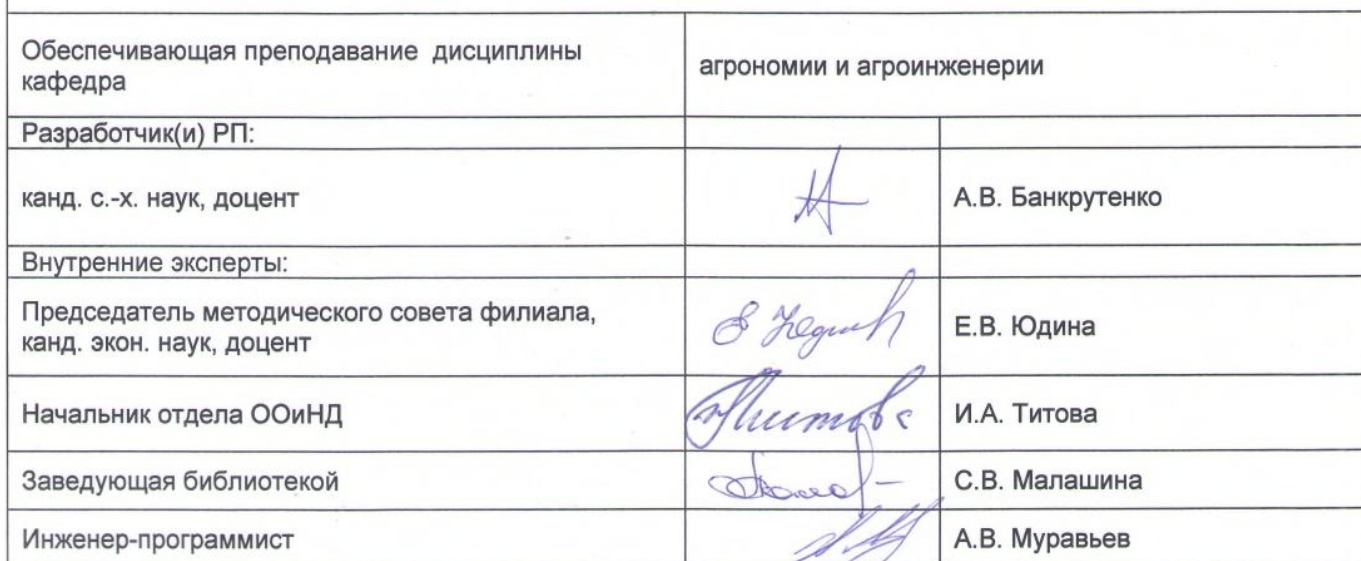 Обеспечивающая преподавание дисциплины
кафедра
агрономии и агроинженерии
Разработчик(и) РП:
канд. с.-х. наук, доцент
А.В. Банкрутенко
Внутренние эксперты:
Председатель методического совета филиала,
канд. экон. наук, доцент
Е.В. Юдина
Начальник отдела ООиНД
И.А. Титова
Заведующая библиотекой
С.В. Малашина
Инженер-программист
А.В. Муравьев